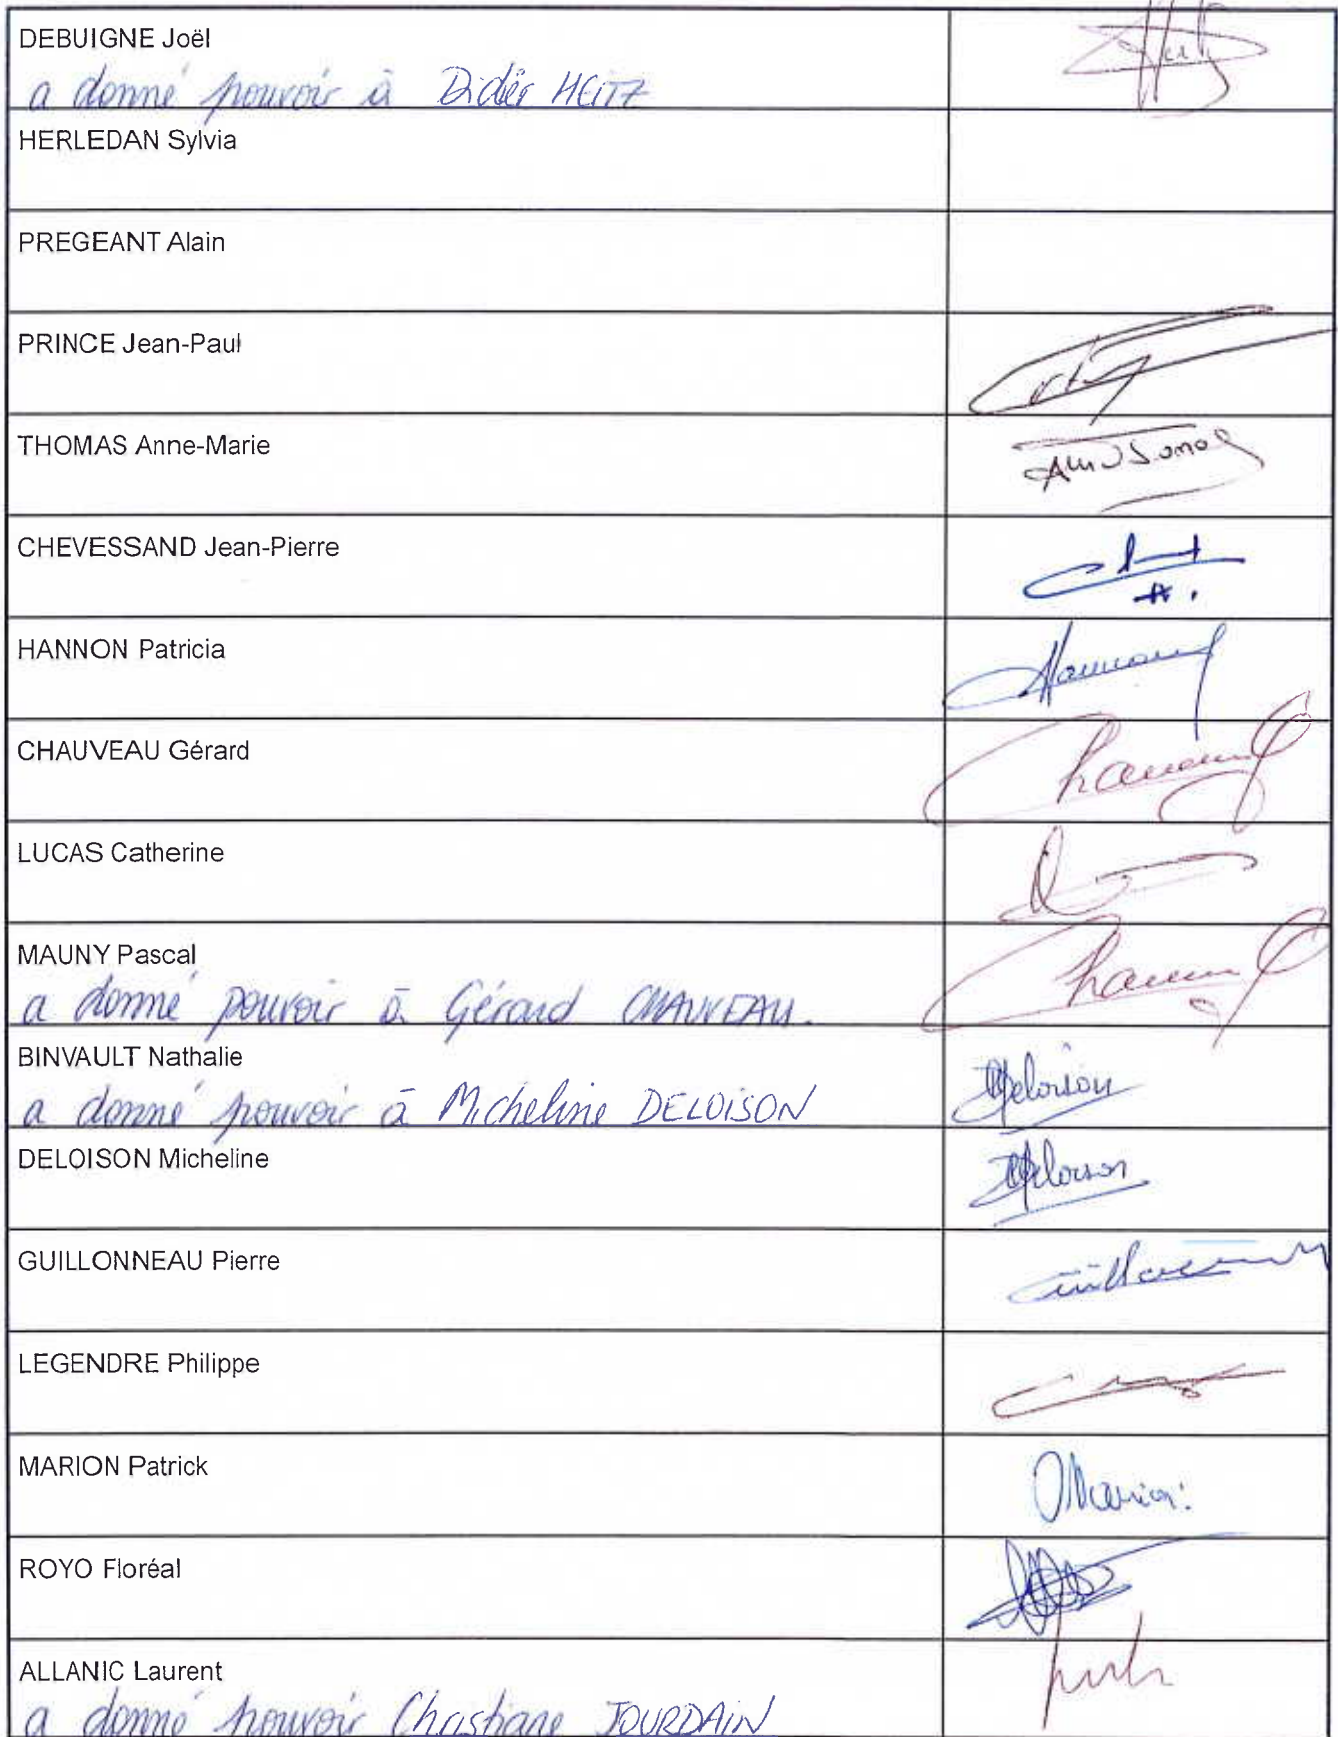 DEBUIGNE Joël
a donné pouvoir à Didier HEITZ
HERLEDAN Sylvia
PREGEANT Alain
PRINCE Jean-Paul
THOMAS Anne-Marie
CHEVESSAND Jean-Pierre
HANNON Patricia
CHAUVEAU Gérard
LUCAS Catherine
MAUNY Pascal
a donné pouvoir à Gérard CHAUVEAU.
BINVAULT Nathalie
a donné pouvoir à Micheline DELOISON
Deloison
DELOISON Micheline
Deloison
GUILLONNEAU Pierre
LEGENDRE Philippe
MARION Patrick
ROYO Floréal
ALLANIC Laurent
a donné pouvoir Christiane JOURDAIN